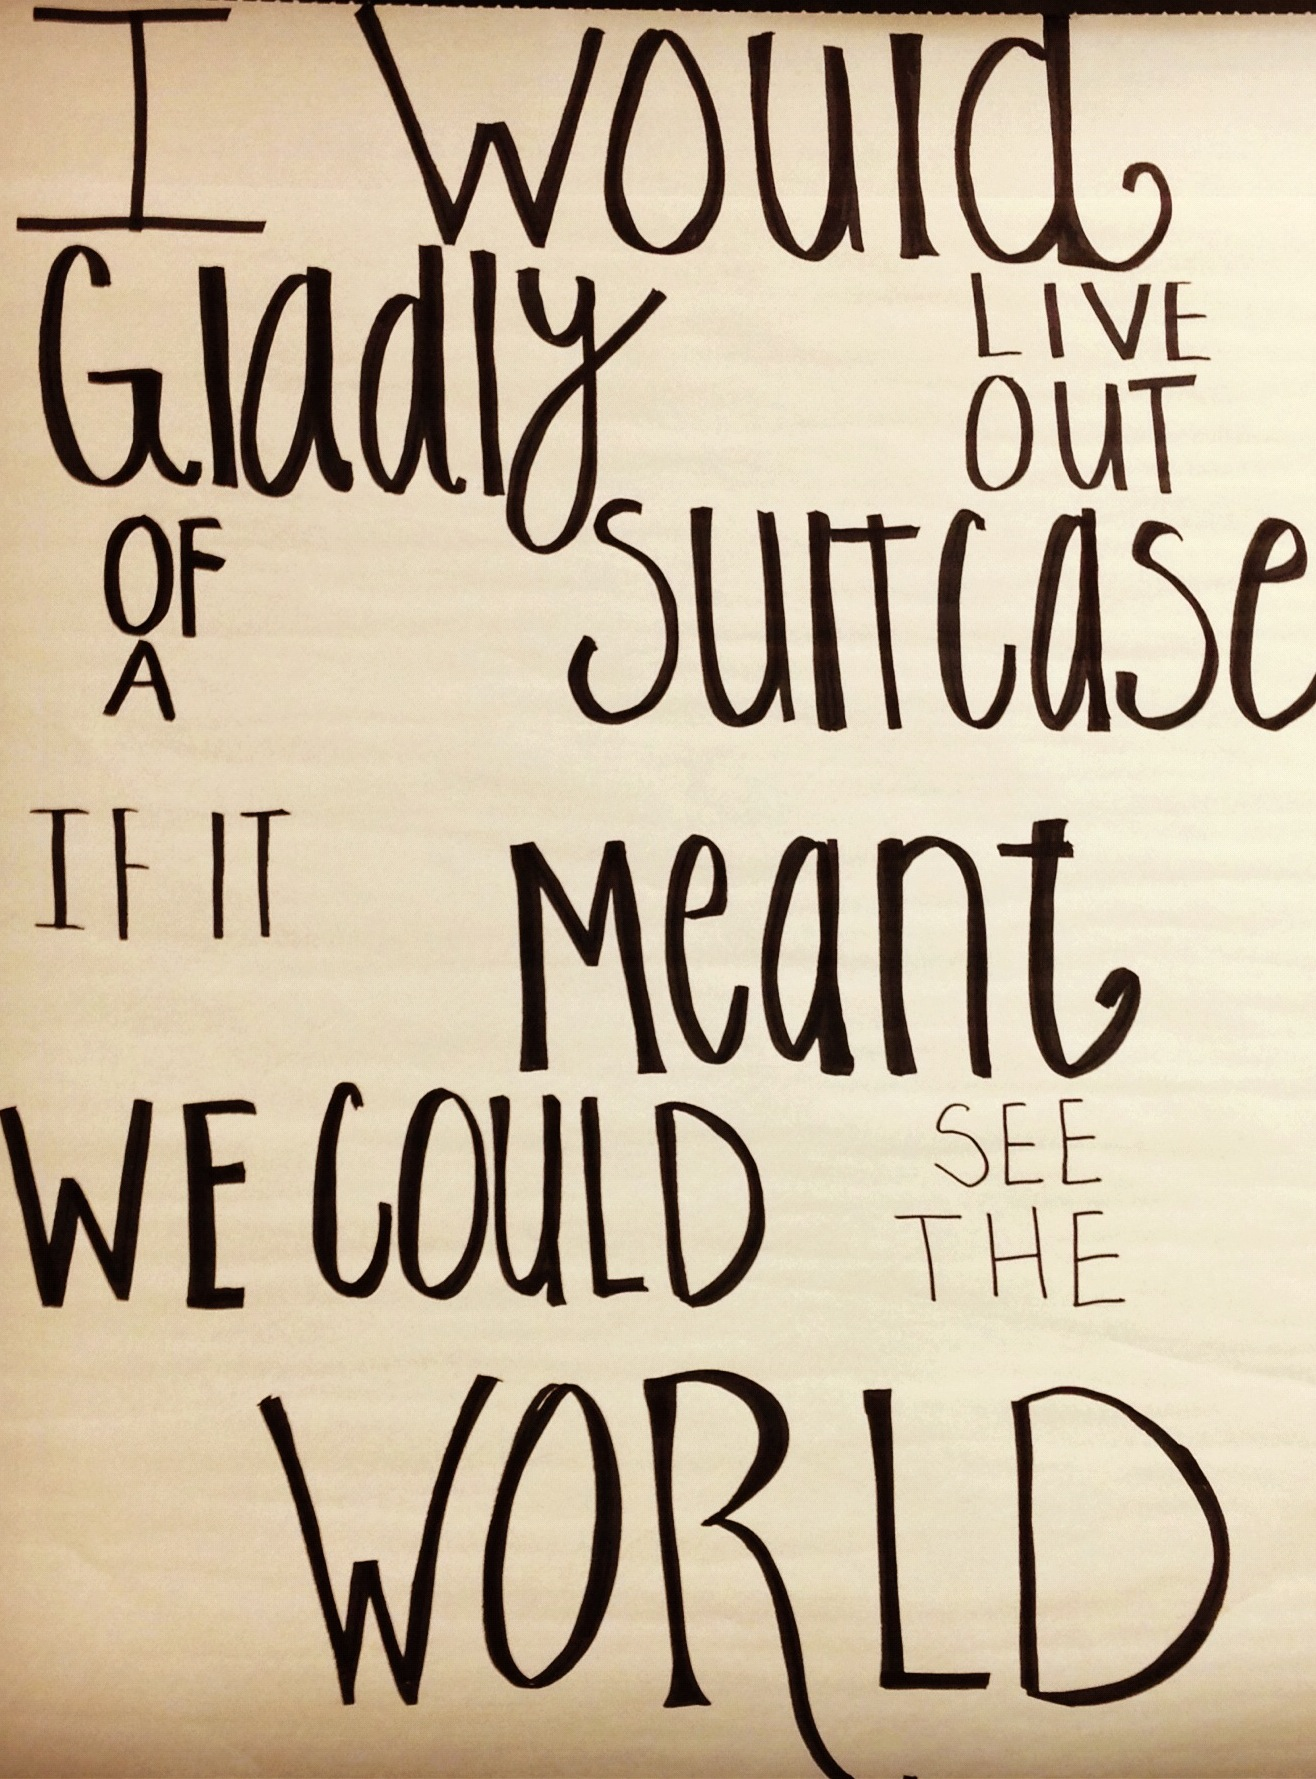 I would
Gladly LIVE
OUT
OF
A suitcase
IF IT meant
WE COULD SEE
THE
WORLD